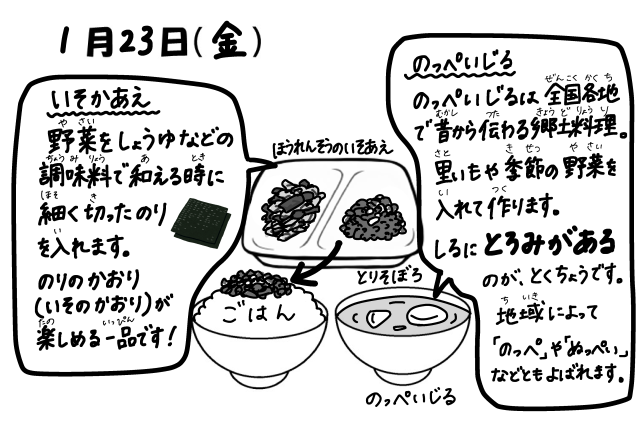 1月23日(金)
いそかあえ
野菜をしょうゆなどの
調味料で和える時に
細く切ったのり
を入れます。
のりのかおり
(いそのかおり)が
楽しめる一品です!
ほうれんそうのいそあえ
とりそぼろ
ごはん
のっぺいじる
のっぺいじる
のっぺいじるは全国各地
で昔から伝わる郷土料理。
里いもや季節の野菜を
入れて作ります。
しるにとろみがある
のが、とくちょうです。
地域によって
「のっぺ」や「ぬっぺい」
などともよばれます。